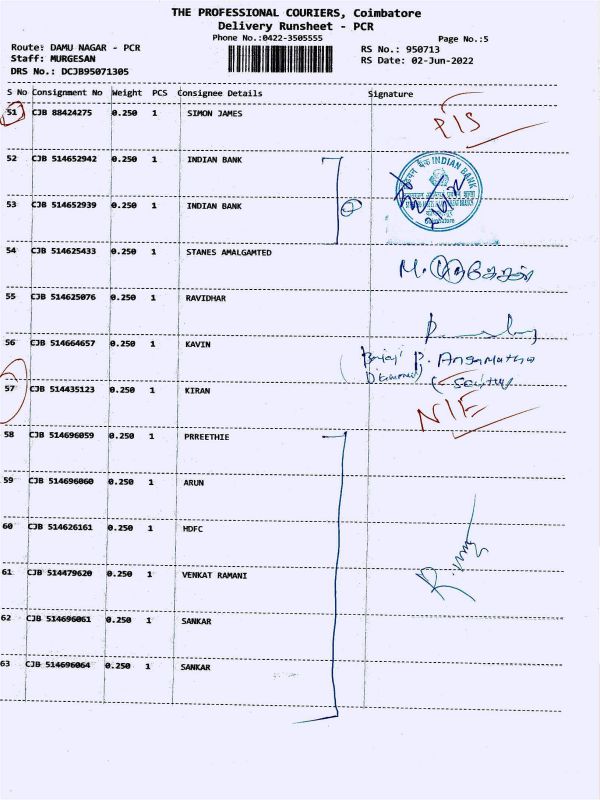 THE PROFESSIONAL COURIERS, Coimbatore
Delivery Runsheet - PCR
Phone No.:0422-3505555
Page No.:5
Route: DAMU NAGAR - PCR
RS No.: 950713
Staff: MURGESAN
RS Date: 02-Jun-2022
DRS No.: DCJB95071305
S No Consignment No Weight PCS Consignee Details Signature
51 CJB 88424275 0.250 1 SIMON JAMES
PIS
52 CJB 514652942 0.250 1 INDIAN BANK
INDIAN BANK
53 CJB 514652939 0.250 1 INDIAN BANK
54 CJB 514625433 0.250 1 STANES AMALGAMTED
M.
55 CJB 514625076 0.250 1 RAVIDHAR
56 CJB 514664657 0.250 1 KAVIN
P. Angamuthu
57 CJB 514435123 0.250 1 KIRAN
NIE
58 CJB 514696059 0.250 1 PRREETHIE
59 CJB 514696060 0.250 1 ARUN
60 CJB 514626161 0.250 1 HDFC
61 CJB 514479620 0.250 1 VENKAT RAMANI
62 CJB 514696061 0.250 1 SANKAR
63 CJB 514696064 0.250 1 SANKAR